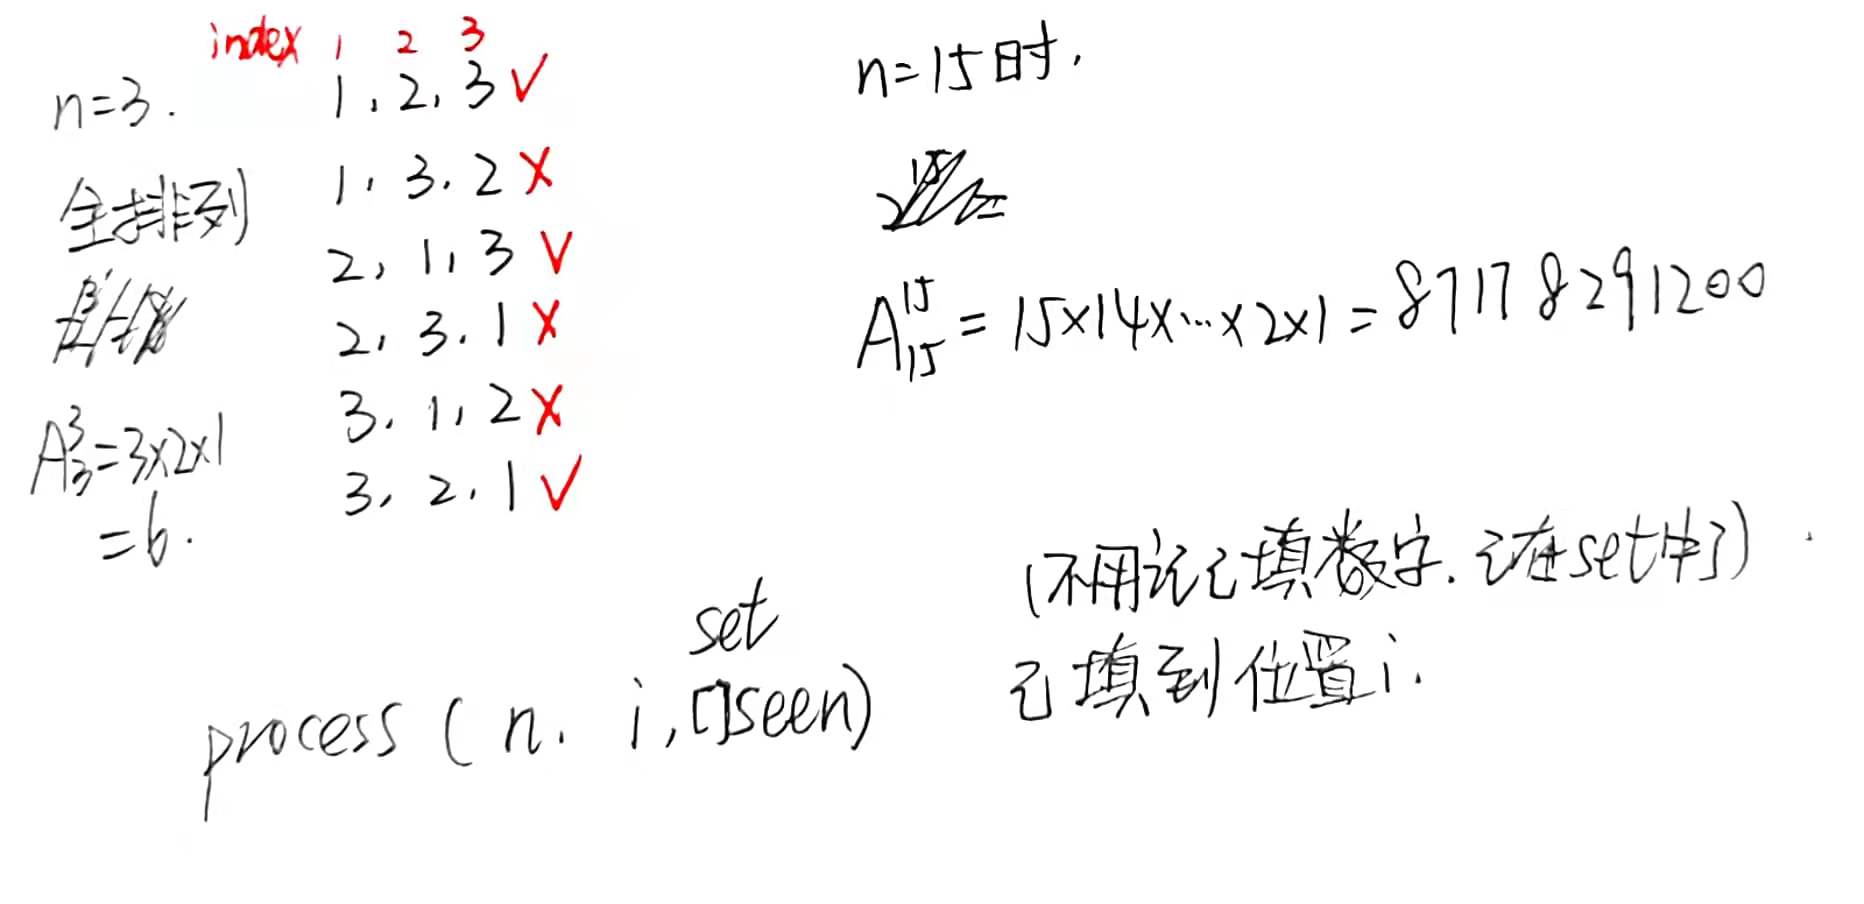 index 1 2 3
n=3. 1,2,3 ✓
全排列 1,3.2 ×
2,1,3 ✓
2,3.1 ×
A₃³=3×2×1 3.1,2 ×
=6. 3,2.1 ✓
n=15时,
A₁₅¹⁵=15×14×…×2×1=87178291200
(不用记已填数字.已在set中了).
set
process(n. i,[]seen) 已填到位置i.